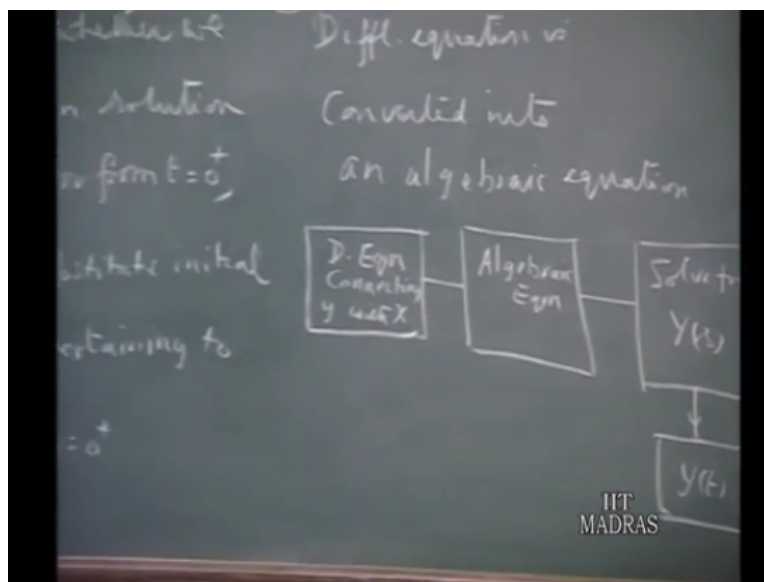 whether we
n solution
from t = 0⁺,
initial
pertaining to
= 0⁺
Diffl. equation is
Converted into
an algebraic equation
D. Eqn
Connecting
y with x
Algebraic
Eqn
Solve for
Y(s)
y(t)
IIT
MADRAS